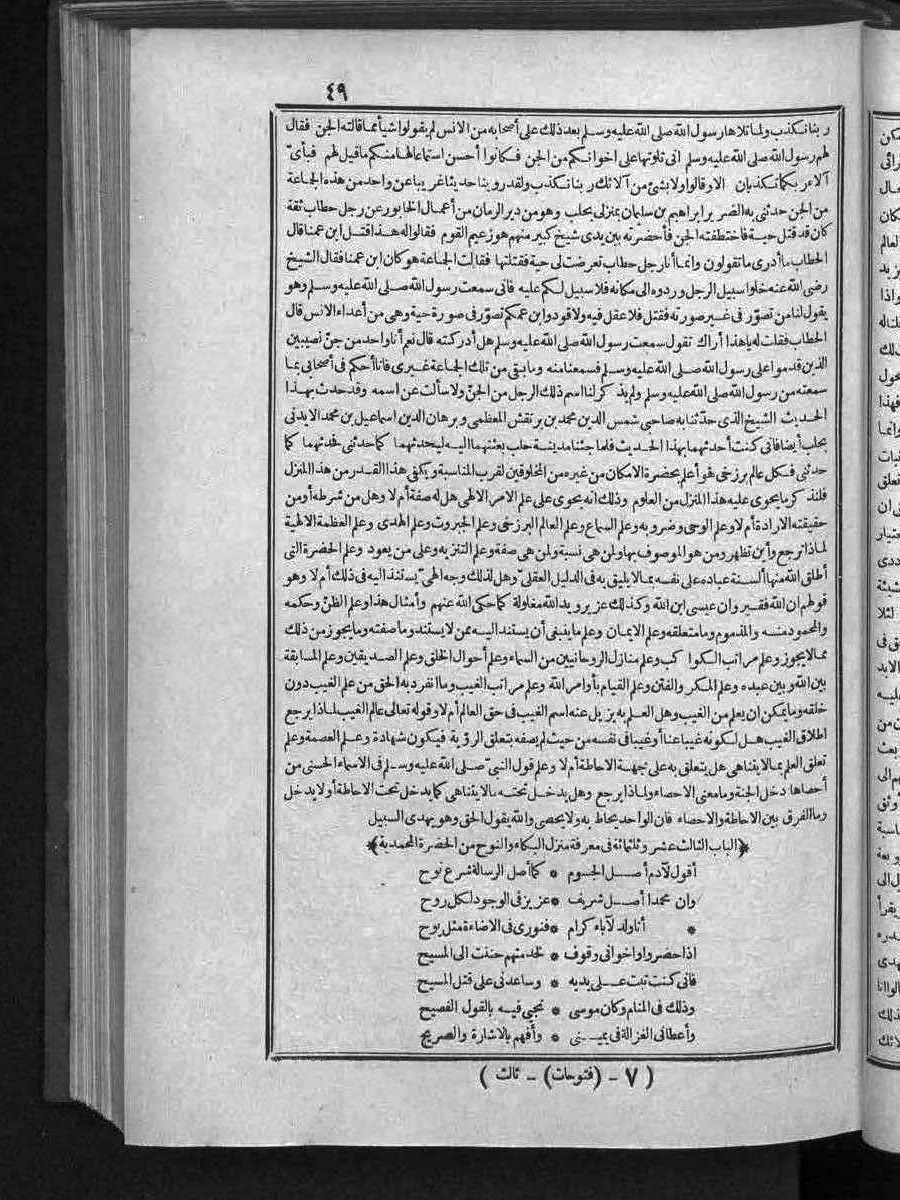 ٤٩
ربنا نكذب ولما تلاها رسول الله صلى الله عليه وسلم بعد ذلك على أصحابه من الانس لم يقولوا شيأ مما قالته الجن فقال
لهم رسول الله صلى الله عليه وسلم انى تلوتها على اخوانكم من الجن فكانوا أحسن استماعا لها منكم ما قيل لهم فبأىّ
آلاء ربكما تكذبان الا وقالوا ولا بشئ من آلائك ربنا نكذب ولقد روينا حديثا غريبا عن واحد من هذه الجماعة
من الجن حدثنى به الضرير ابراهيم بن سليمان بمنزلى بحلب وهو من دير الرمان من أعمال الخابور عن رجل حطاب ثقة
كان قد قتل حية فاختطفته الجن فأحضرته بين يدى شيخ كبير منهم هو زعيم القوم فقالوا له هذا قتل ابن عمنا قال
الحطاب ما أدرى ما تقولون وانما أنا رجل حطاب تعرضت لى حية فقتلتها فقالت الجماعة هو كان ابن عمنا فقال الشيخ
رضى الله عنه خلوا سبيل الرجل وردوه الى مكانه فلا سبيل لكم عليه فانى سمعت رسول الله صلى الله عليه وسلم وهو
يقول لنا من تصوّر فى غير صورته فقتل فلا عقل فيه ولا قود وابن عمكم تصوّر فى صورة حية وهى من أعداء الانس قال
الحطاب فقلت له يا هذا أراك تقول سمعت رسول الله صلى الله عليه وسلم هل أدركته قال نعم أنا واحد من جنّ نصيبين
الذين قدموا على رسول الله صلى الله عليه وسلم فسمعنا منه وما بقى من تلك الجماعة غيرى فأنا أحكم فى أصحابى بما
سمعته من رسول الله صلى الله عليه وسلم ولم يذكر لنا اسم ذلك الرجل من الجنّ ولا سألت عن اسمه وقد حدث بهذا
الحديث الشيخ الذى حدّثنا به صاحبى شمس الدين محمد بن برنقش المعظمى وبرهان الدين اسماعيل بن محمد الايدنى
بحلب أيضا فانى كنت أحدثهما بهذا الحديث فلما جئنا مدينة حلب بعثتهما اليه ليحدثهما كما حدثنى فحدثهما كما
حدثنى فكل عالم برزخى فهو أعلم بحضرة الامكان من غيره من المخلوقين لقرب المناسبة ويكفى هذا القدر من هذا المنزل
فلنذكر ما يحوى عليه هذا المنزل من العلوم وذلك انه يحوى على علم الامر الالهى هل له صفة أم لا وهل من شرطه أو من
حقيقته الارادة أم لا وعلم الوحى وضروبه وعلم السماع وعلم العالم البرزخى وعلم الجبروت وعلم الهدى وعلم العظمة الالهية
لماذا ترجع وأين تظهر ومن هو الموصوف بها ولمن هى نسبة ولمن هى صفة وعلم التنزيه وعلى من يعود وعلم الحضرة التى
أطلق الله منها ألسنة عباده على نفسه بما لا يليق به فى الدليل العقلىّ وهل لذلك وجه الهىّ يستند اليه فى ذلك أم لا وهو
قولهم ان الله فقير وان عيسى ابن الله وكذلك عزير ويد الله مغلولة كما حكى الله عنهم وأمثال هذا وعلم الظنّ وحكمه
والمحمود منه والمذموم وما متعلقه وعلم الايمان وعلم ما ينبغى أن يستند اليه ممن لا يستند وما صفته وما يجوز من ذلك
مما لا يجوز وعلم مراتب الكواكب وعلم منازل الروحانيين من السماء وعلم أحوال الخلق وعلم الصديقين وعلم المسابقة
بين الله وبين عبده وعلم المكر والفتن وعلم القيام بأوامر الله وعلم مراتب الغيب وما انفرد به الحق من علم الغيب دون
خلقه وما يمكن ان يعلم من الغيب وهل العلم به يزيل عنه اسم الغيب فى حق العالم أم لا وقوله تعالى عالم الغيب لماذا يرجع
اطلاق الغيب هل لكونه غيبا عنا أو غيبا فى نفسه من حيث لم يصفه بتعلق الرؤية فيكون شهادة وعلم العصمة وعلم
تعلق العلم بما لا يتناهى هل يتعلق به على جهة الاحاطة أم لا وعلم قول النبىّ صلى الله عليه وسلم فى الاسماء الحسنى من
أحصاها دخل الجنة وما معنى الاحصاء ولماذا يرجع وهل يدخل تحته ما لا يتناهى كما يدخل تحت الاحاطة أولا يدخل
وما الفرق بين الاحاطة والاحصاء فان الواحد يحاط به ولا يحصى والله يقول الحق وهو يهدى السبيل
﴿الباب الثالث عشر وثلثمائة فى معرفة منزل البكاء والنوح من الحضرة المحمدية﴾
أقول لآدم أصل الجسوم * كما أصل الرسالة شرع نوح
وان محمدا أصل شريف * عزيز فى الوجود لكل روح
* أنا ولد لآباء كرام * فنورى فى الاضاءة مثل يوح
اذا حضروا واخوانى وقوف * لخدمتهم حننت الى المسيح
فانى كنت تبت على يديه * وساعدنى على قتل المسيح
وذلك فى المنام وكان موسى * نجيى فيه بالقول الفصيح
وأعطانى الغزالة فى يمينى * وأفهم بالاشارة والصريح
(٧ - (فتوحات) - ثالث)